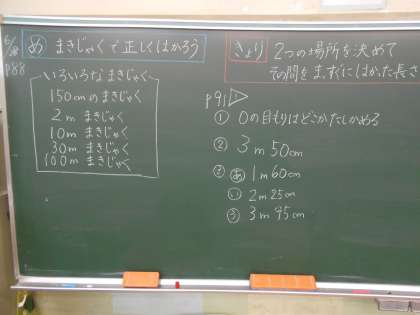 6/28
め まきじゃくで正しくはかろう
P88
いろいろなまきじゃく
150cmのまきじゃく
2m まきじゃく
10m まきじゃく
30m まきじゃく
100m まきじゃく
きょり 2つの場所を決めて
その間をまっすぐにはかった長さ
P91
① 0の目もりはどこかたしかめる
② 3m50cm
③ あ 1m60cm
い 2m25cm
う 3m95cm